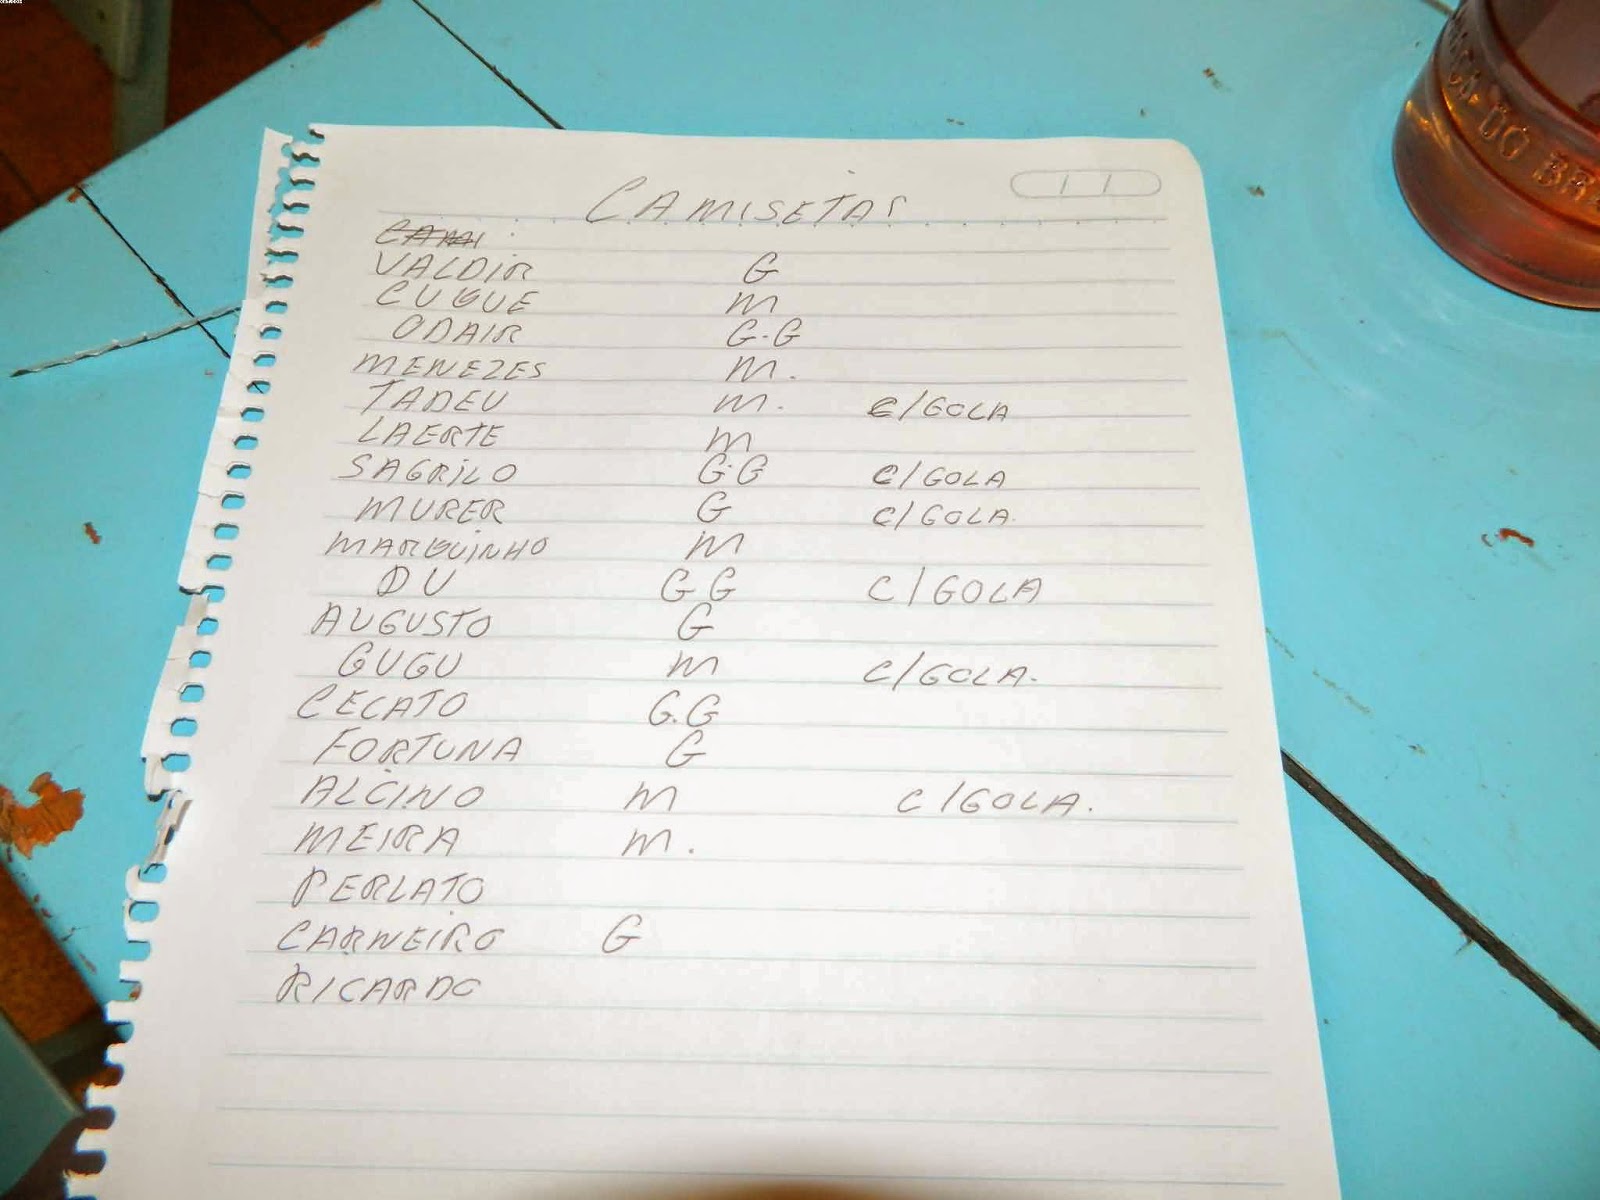 CAMISETAS
VALDIR G
CUGUE M
ODAIR G.G
MENEZES M.
TADEU M. C/GOLA
LAERTE M
SAGRILO G.G C/GOLA
MURER G C/GOLA.
MARGUINHO M
DU GG C/GOLA
AUGUSTO G
GUGU M C/GOLA.
CECATO G.G
FORTUNA G
ALCINO M C/GOLA.
MEIRA M.
PERLATO
CARNEIRO G
RICARDO
DO BR